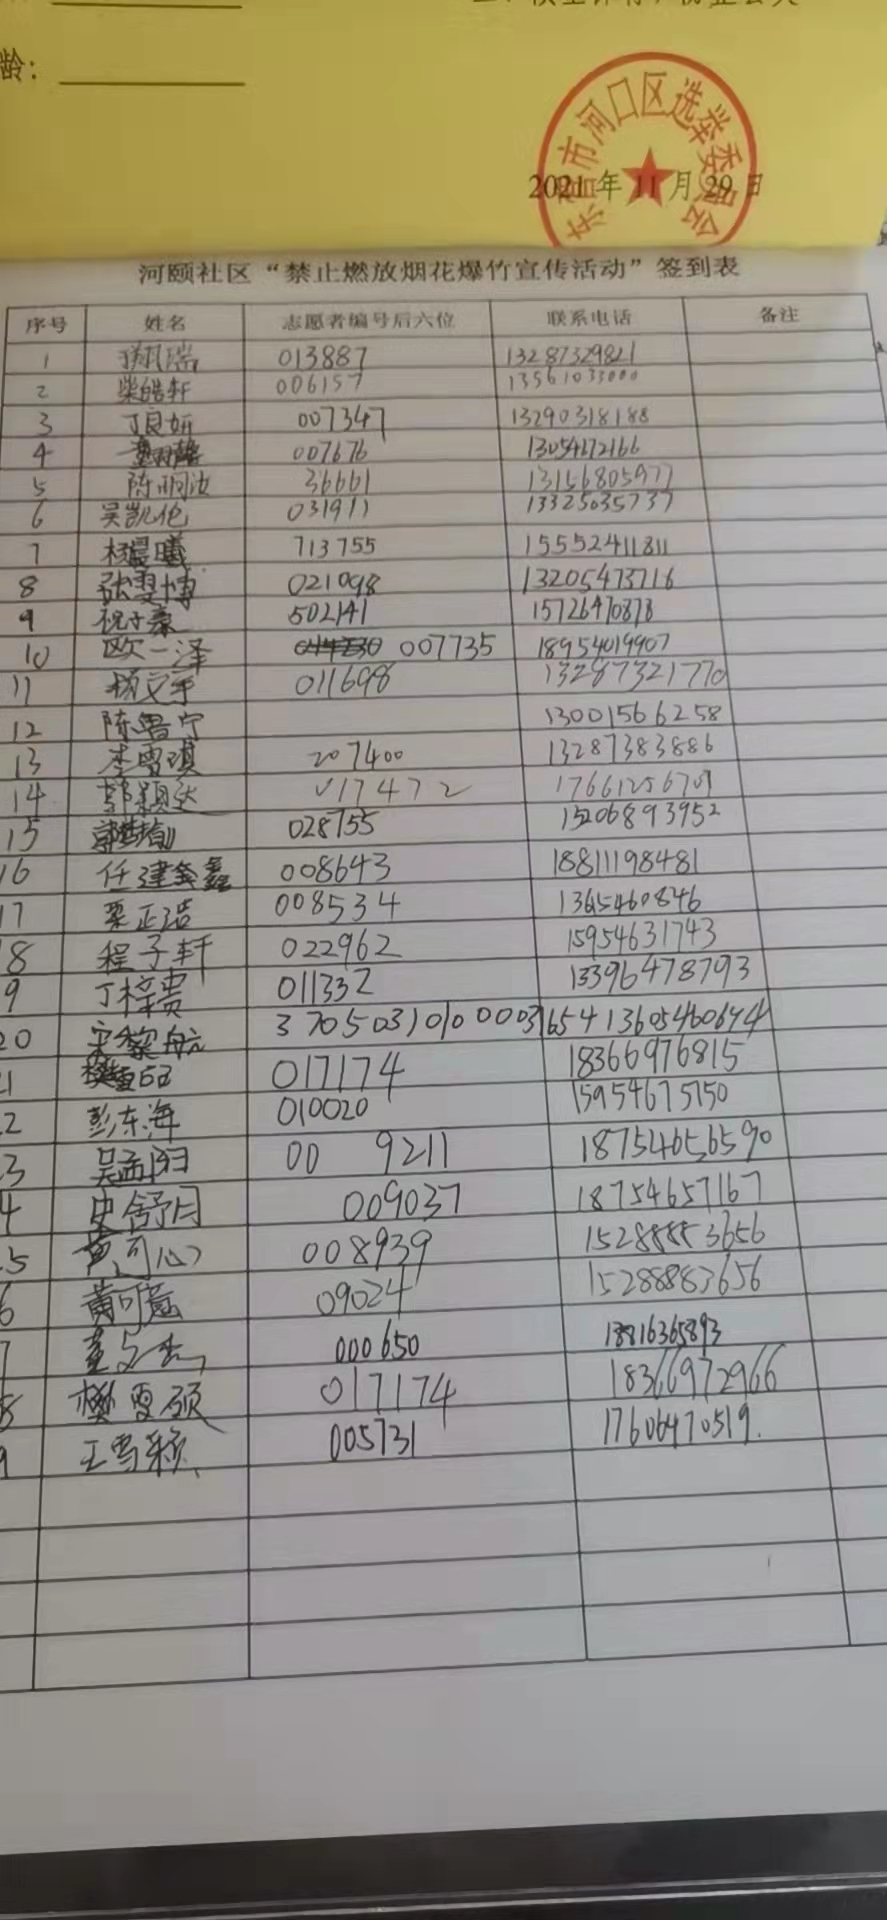 龄：
东营市河口区选举委员会
2021年11月29日
河颐社区“禁止燃放烟花爆竹宣传活动”签到表
序号 姓名 志愿者编号后六位 联系电话 备注
1 013887 13287329821
2 柴皓轩 006157 13561033000
3 丁良妍 007347 13290318188
4 007676 13054672166
5 陈 36661 13156805977
6 吴凯伦 031911 13325035737
7 杨晨曦 713755 15552411811
8 张雯博 021098 13205473716
9 祝子豪 502141 15726470878
10 欧一泽 007735 18954019907
11 杨文宇 011698 13287321770
12 陈鲁宁 13001566258
13 李雪琪 207400 13287383886
14 郭颖达 017472 17661256701
15 028755 15206893952
16 任建鑫 008643 18811198481
17 栗正浩 008534 13615460846
8 程子轩 022962 15954631743
9 丁梓贵 011332 13396478793
20 宋黎航 370503101000031654 13605460644
1 017174 18366976815
2 彭东海 010020 15954675150
3 吴孟阳 00 9211 18754656590
4 史舒月 009037 18754657167
5 黄可心 008939 15288883656
6 黄可意 09024 15288883656
7 000650 18816365893
8 樊雯硕 017174 18366972966
9 王雪颖 005731 17606470519.